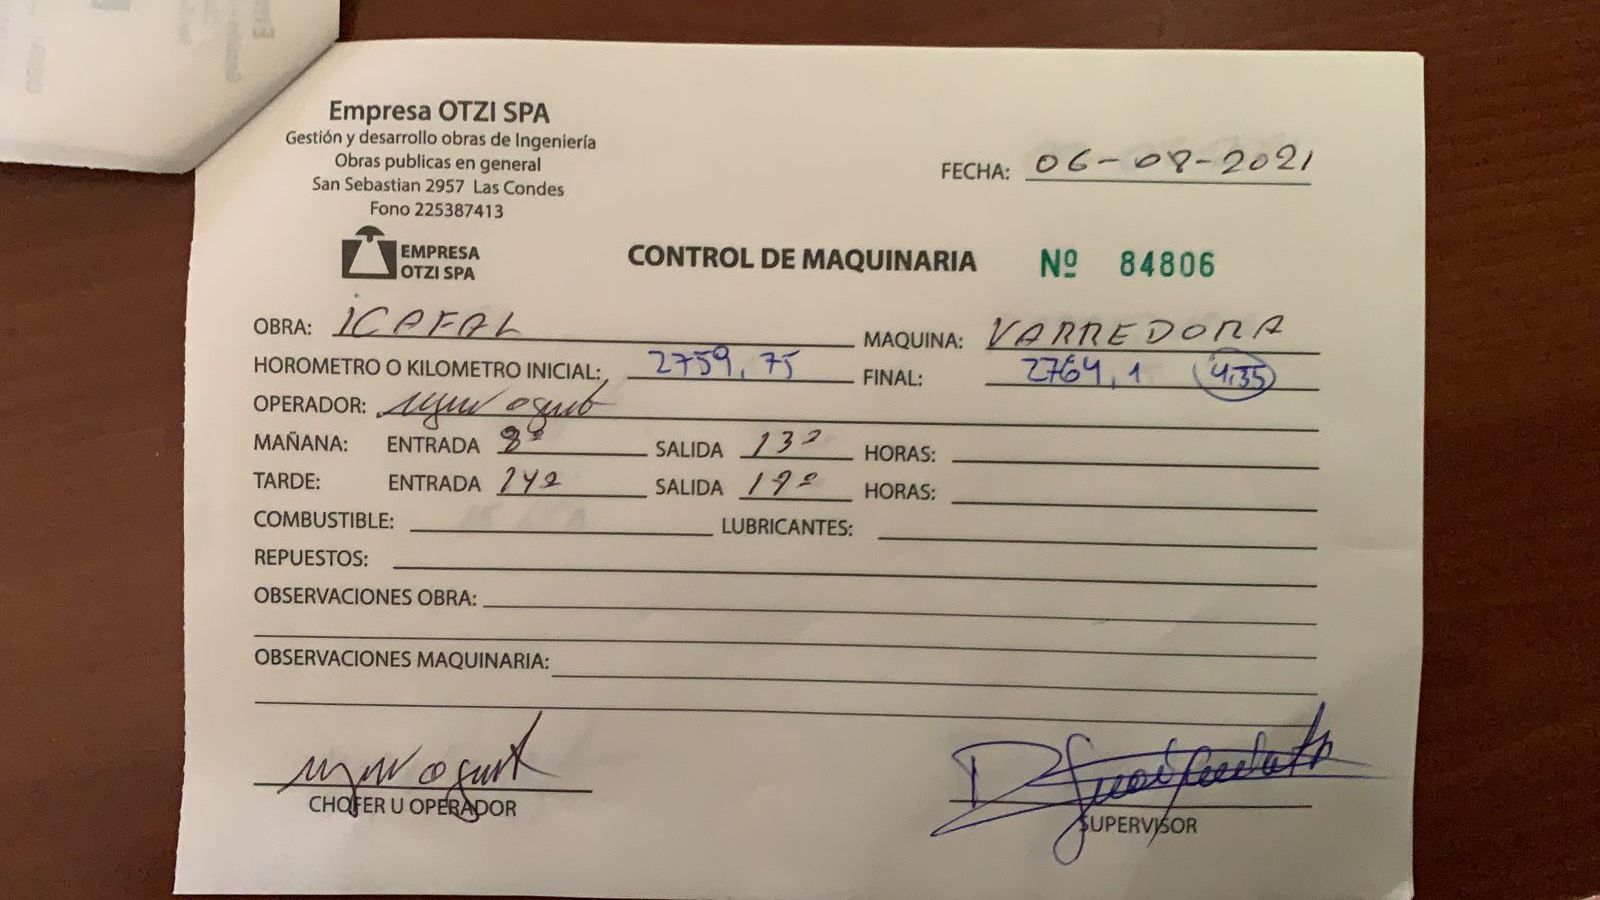 Empresa OTZI SPA
Gestión y desarrollo obras de Ingeniería
Obras publicas en general
San Sebastian 2957 Las Condes
Fono 225387413
EMPRESA
OTZI SPA
FECHA: 06-08-2021
CONTROL DE MAQUINARIA Nº 84806
OBRA: ICAFAL MAQUINA: VARREDORA
HOROMETRO O KILOMETRO INICIAL: 2759,75 FINAL: 2764,1 4,35
OPERADOR:
MAÑANA: ENTRADA 8º SALIDA 13º HORAS:
TARDE: ENTRADA 14º SALIDA 19º HORAS:
COMBUSTIBLE: LUBRICANTES:
REPUESTOS:
OBSERVACIONES OBRA:
OBSERVACIONES MAQUINARIA:
CHOFER U OPERADOR
SUPERVISOR